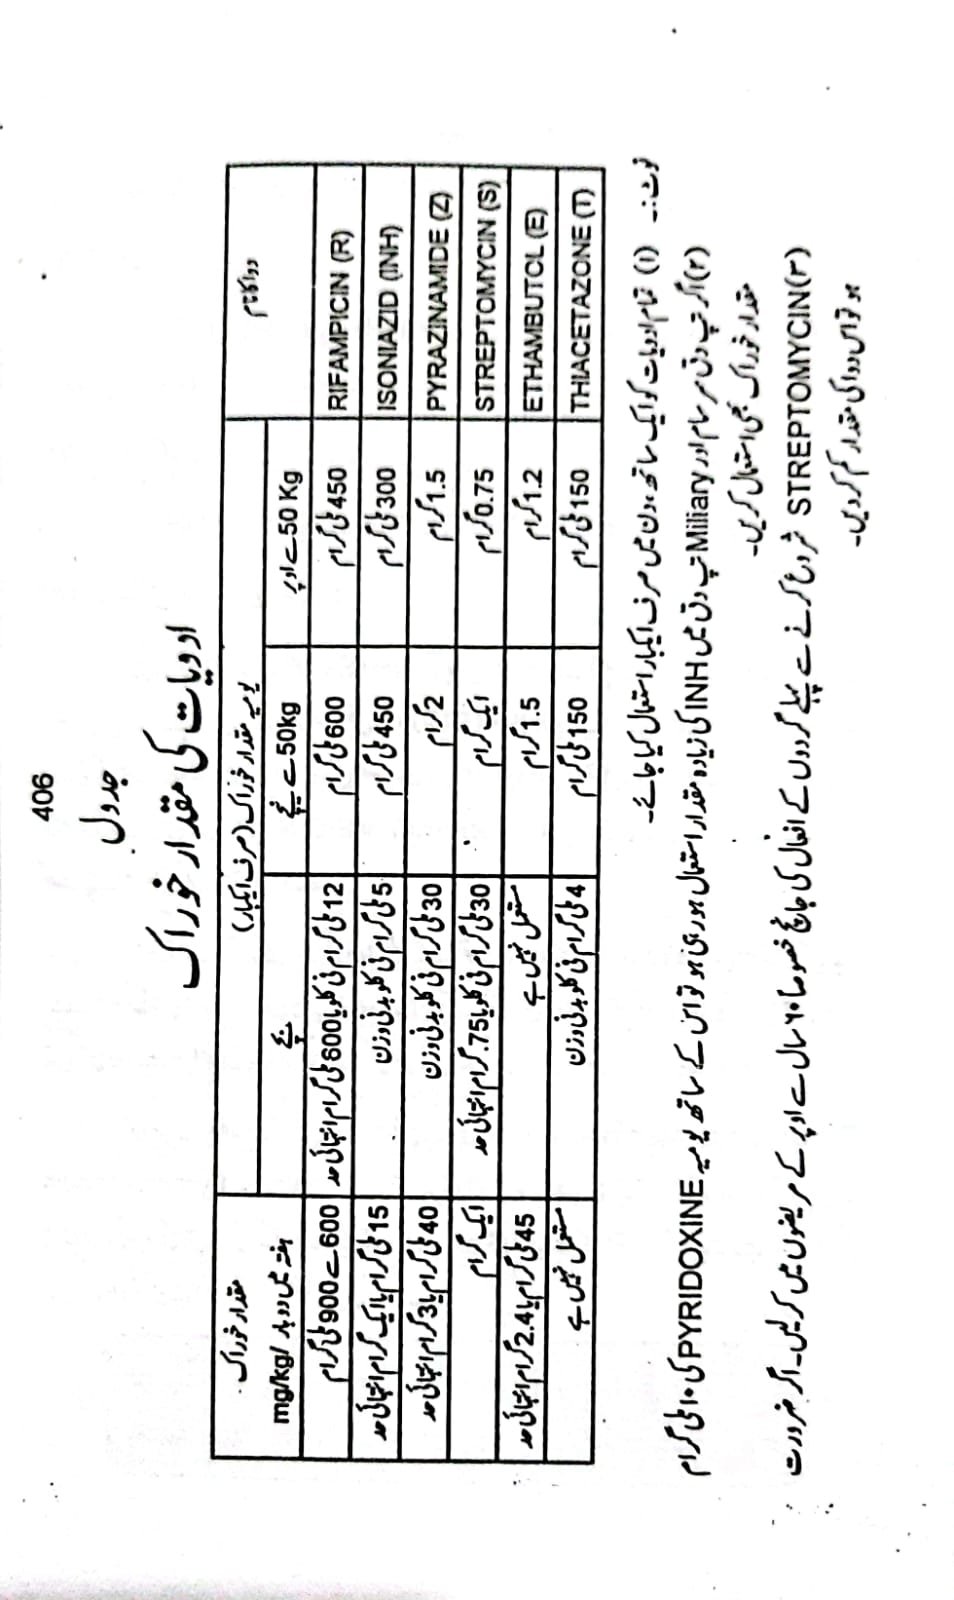 406
جدول
ادویات کی مقدار خوراک
دوا کا نام
یومیہ مقدار خوراک (صرف ایکبار)
مقدار خوراک
50 Kg سے اوپر
50kg سے نیچے
بچے
ہفتہ میں دو بار /mg/kg
RIFAMPICIN (R) 450 ملی گرام 600 ملی گرام 12 ملی گرام فی کلو یا 600 ملی گرام انتہائی حد 600 سے 900 ملی گرام
ISONIAZID (INH) 300 ملی گرام 450 ملی گرام 5 ملی گرام فی کلو بدنی وزن 15 ملی گرام یا ایک گرام انتہائی حد
PYRAZINAMIDE (Z) 1.5 گرام 2 گرام 30 ملی گرام فی کلو بدنی وزن 40 ملی گرام یا 3 گرام انتہائی حد
STREPTOMYCIN (S) 0.75 گرام ایک گرام 30 ملی گرام فی کلو یا 75. گرام انتہائی حد ایک گرام
ETHAMBUTCL (E) 1.2 گرام 1.5 گرام مستعمل نہیں ہے 45 ملی گرام یا 2.4 گرام انتہائی حد
THIACETAZONE (T) 150 ملی گرام 150 ملی گرام 4 ملی گرام فی کلو بدنی وزن مستعمل نہیں ہے
نوٹ:۔ (۱) تمام ادویات کو ایک ساتھ دن میں صرف ایکبار استعمال کیا جائے۔
(۲) اگر تپ دق سرسام اور Miliary تپ دق میں INH کی زیادہ مقدار استعمال ہو رہی ہو تو اس کے ساتھ یومیہ PYRIDOXINE کی ۱۰ ملی گرام
مقدار خوراک بھی استعمال کریں۔
(۳) STREPTOMYCIN شروع کرنے سے پہلے گردوں کے افعال کی جانچ خصوصا ۶۰ سال سے اوپر کے مریضوں میں کرلیں۔ اگر ضرورت
ہو تو اس دوا کی مقدار کم کر دیں۔